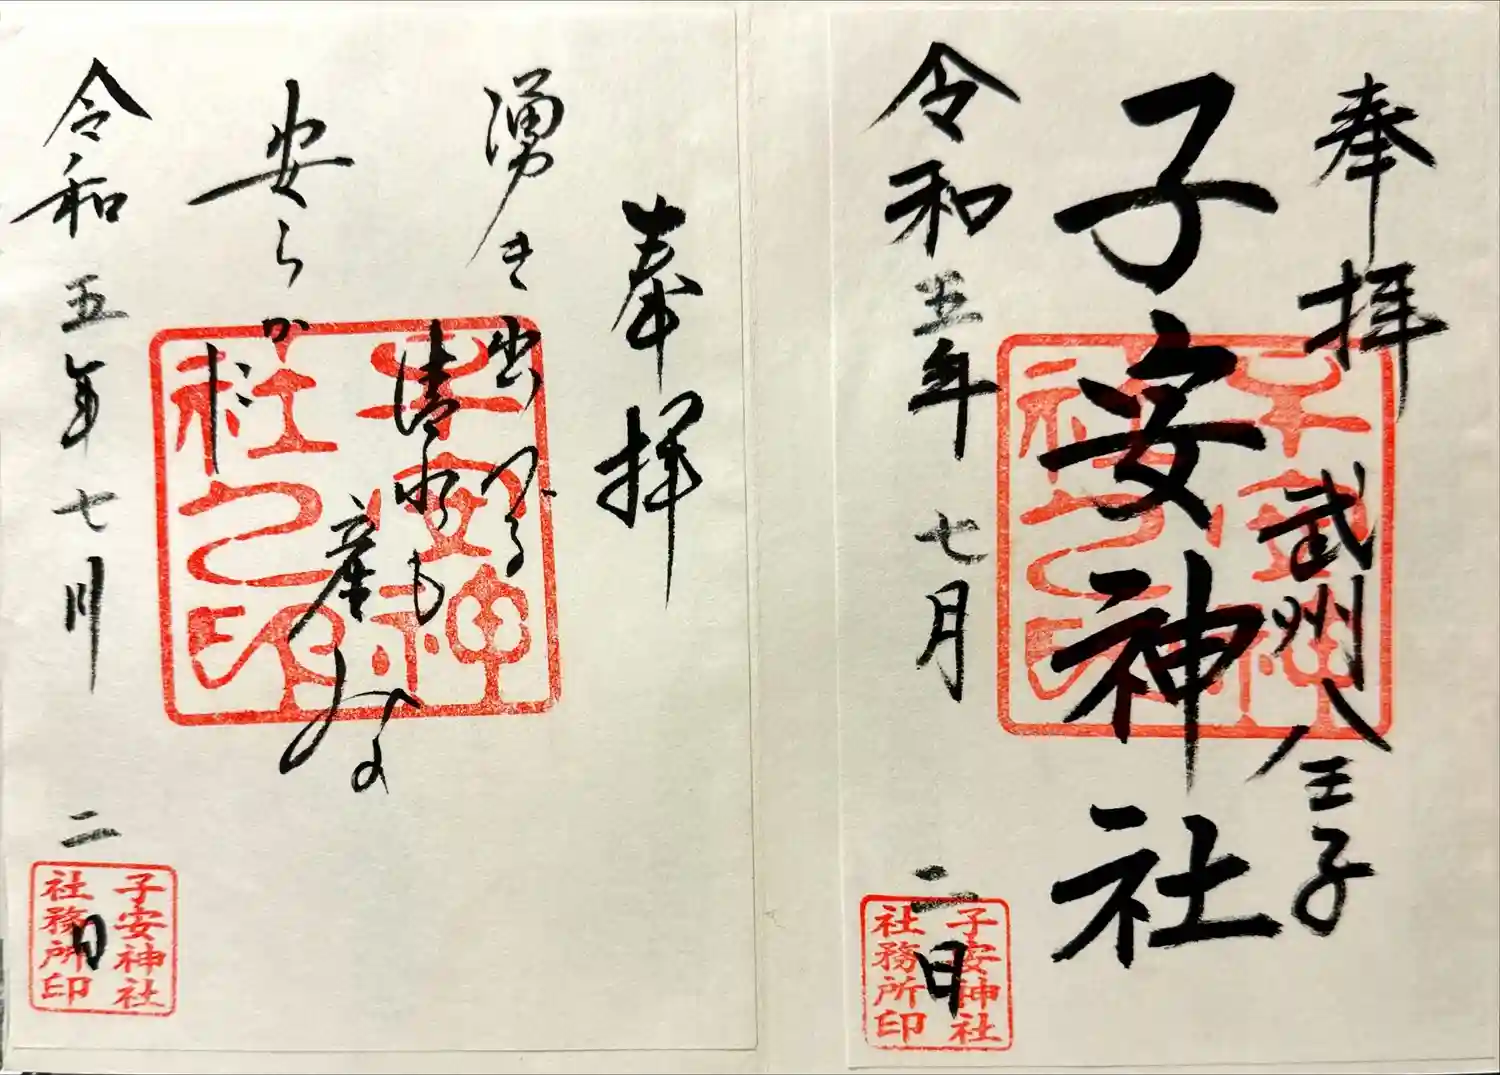 奉拝
武州八王子
子安神社
令和五年七月二日
子安神社之印
子安神社
社務所印
奉拝
湧き出づる
清水も
産みな
安らかに
令和五年七月二日
子安神社之印
子安神社
社務所印